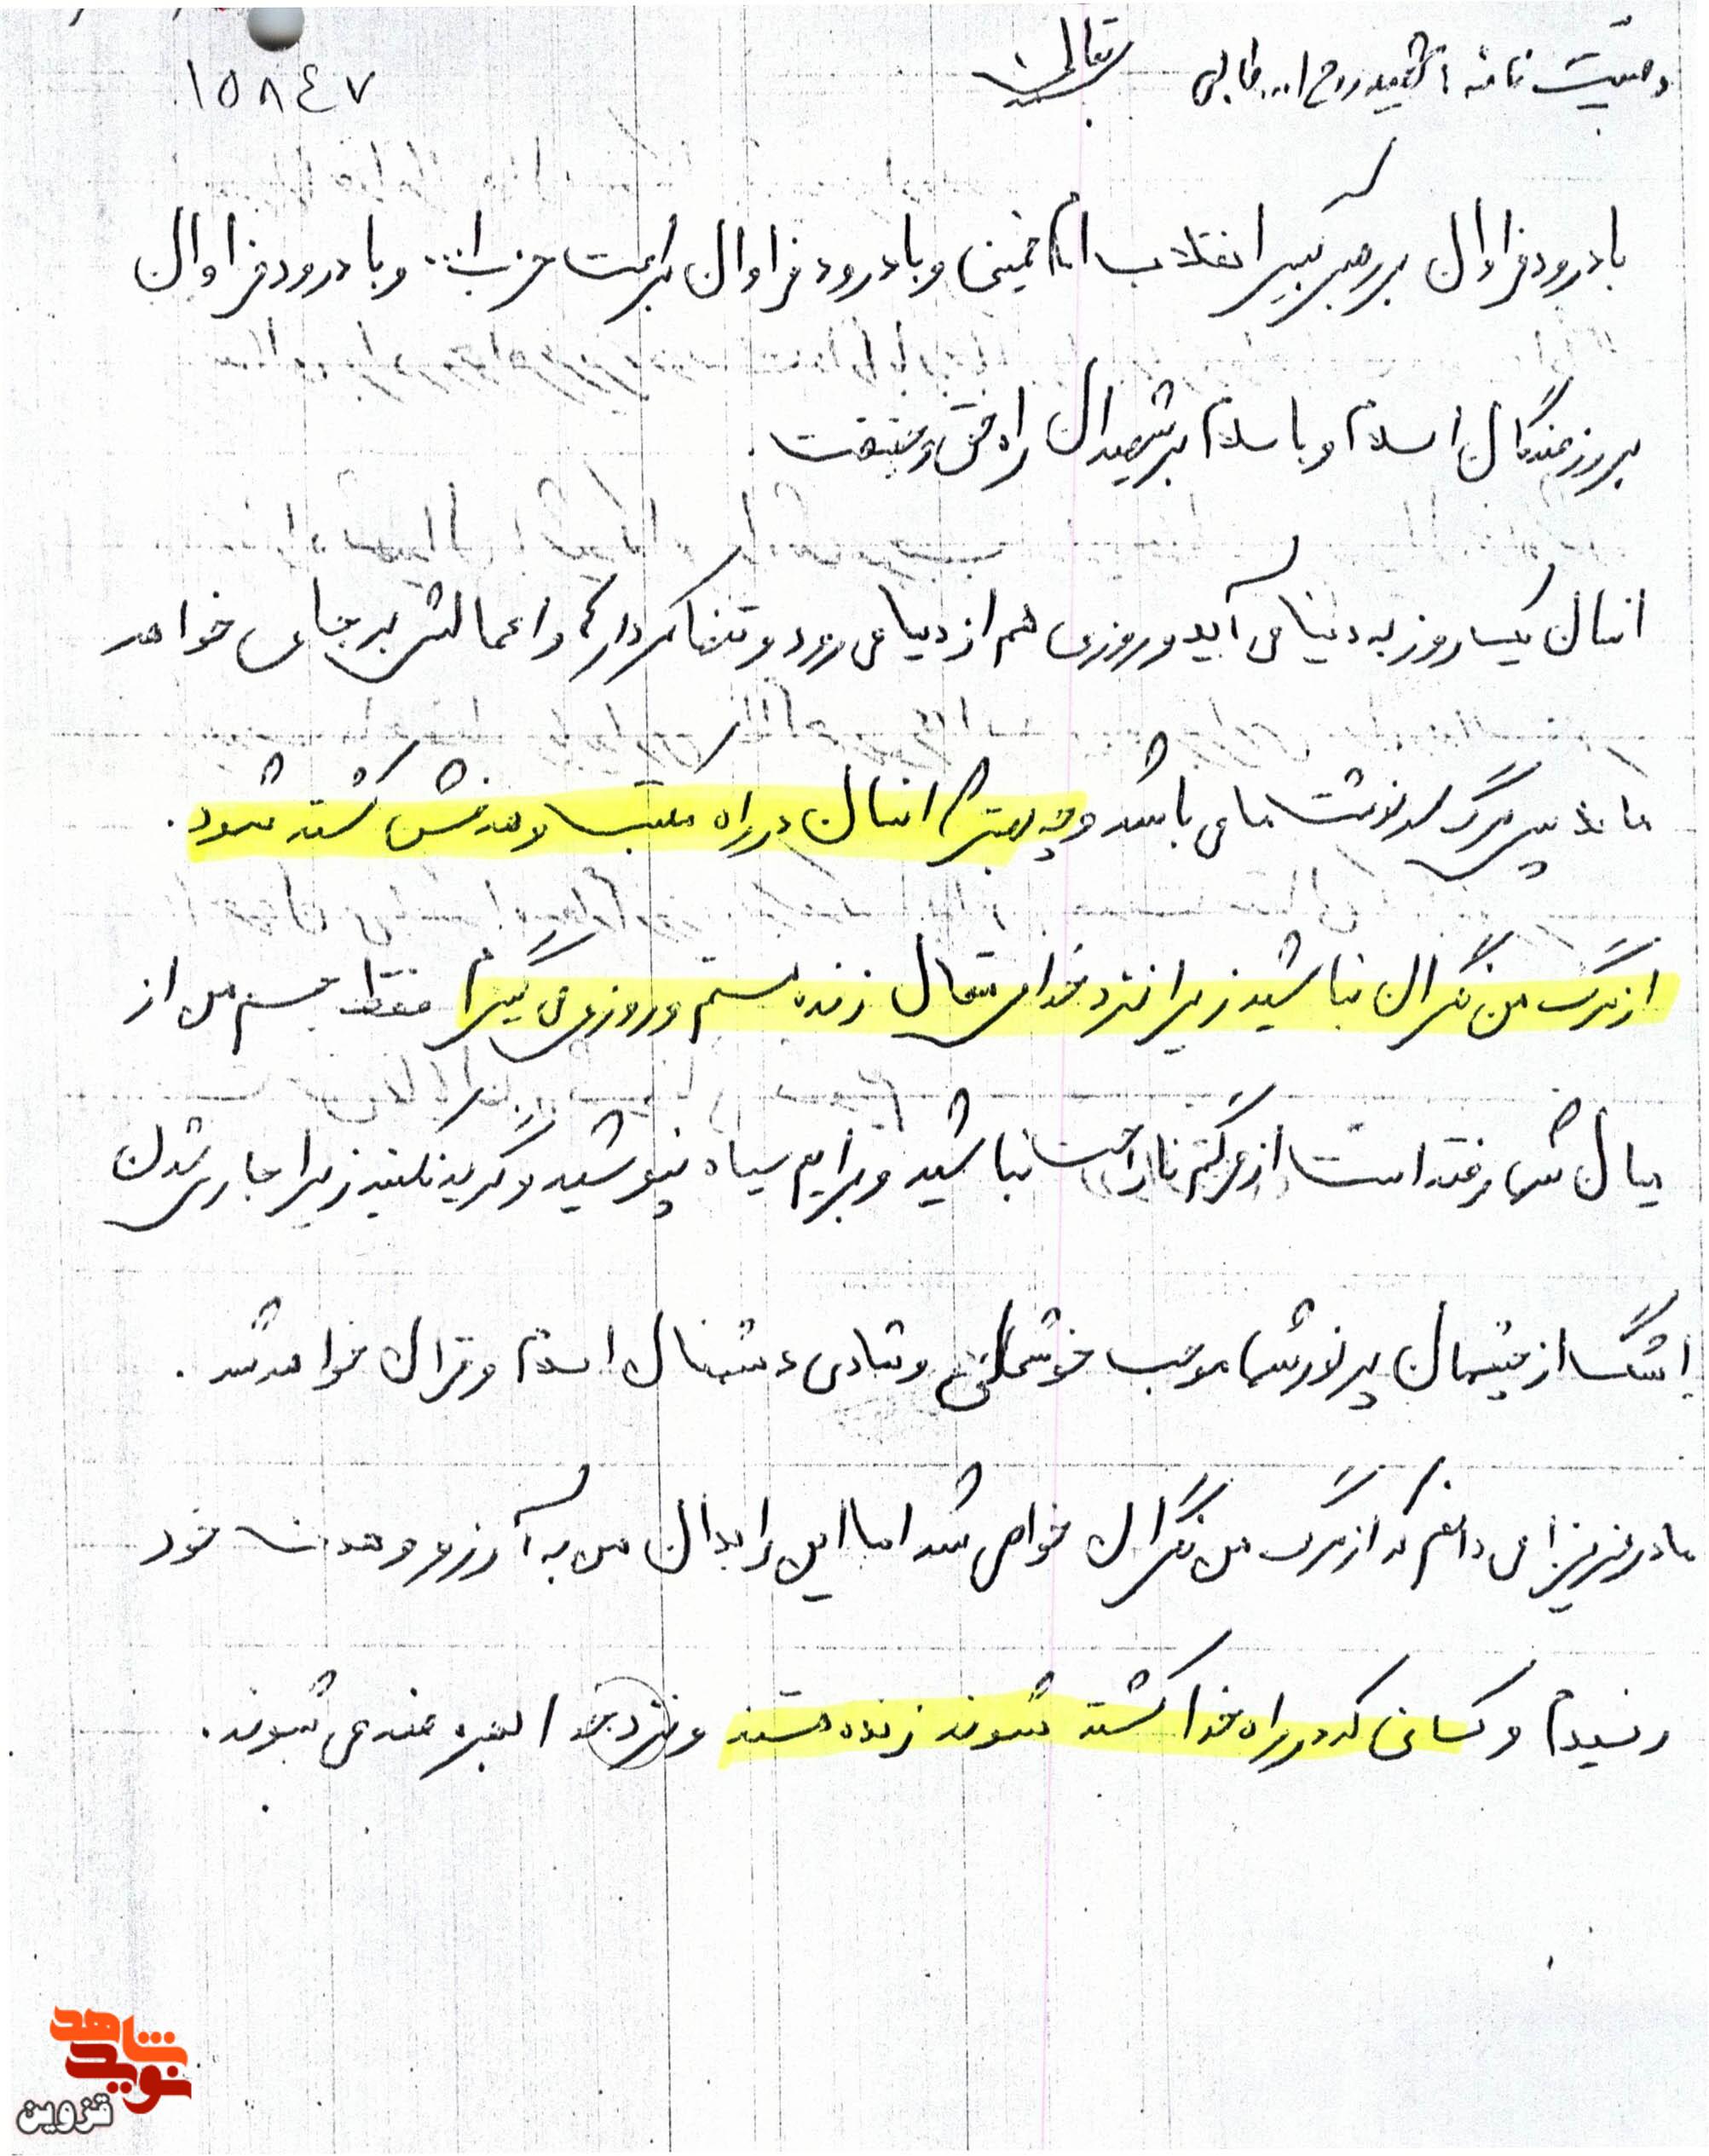 وصیت نامه شهید روح ا... طالبی
بسمه تعالی
۱۵۸۴۷
با درود فراوان بر رهبر کبیر انقلاب امام خمینی و با درود فراوان بر امت حزب ا... و با درود فراوان
بر رزمندگان اسلام و با سلام بر شهیدان راه حق و حقیقت .
انسان یک روز به دنیا می آید و روزی هم از دنیا می رود و تنها کردار و اعمالش بر جای خواهد
ماند پس مرگ سرنوشت ما می باشد و چه بهتر انسان در راه مکتب و هدفش کشته شود .
از مرگ من نگران نباشید زیرا نزد خدای متعال زنده هستم و روزی می گیرم فقط جسم من از
میان شما رفته است از مرگم ناراحت نباشید و برایم سیاه نپوشید و گریه نکنید زیرا جاری شدن
اشک از چشمان پر نور شما موجب خوشحالی و شادی دشمنان اسلام و قرآن خواهد شد .
مادر عزیزم می دانم که از مرگ من نگران خواهی شد اما این را بدان من به آرزو و هدف خود
رسیدم و کسانی که در راه خدا کشته شوند زنده هستند و نزد خدا بهره مند می شوند .
نوید شاهد
قزوین